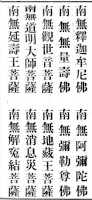 南無釋迦牟尼佛
南無無量壽佛
南無觀世音菩薩
南無道明大師菩薩
南無延壽王菩薩
南無阿彌陀佛
南無彌勒尊佛
南無地藏王菩薩
南無消息災菩薩
南無解冤結菩薩